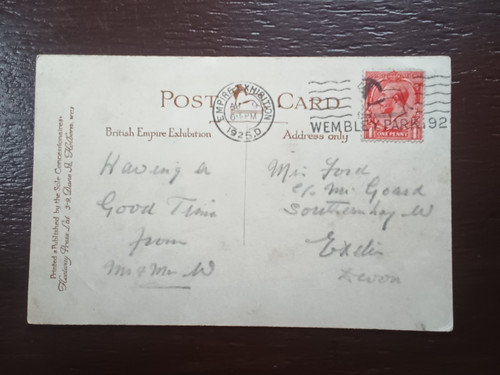 POST CARD
EMPIRE EXHIBITION
1925
WEMBLEY PARK. 192
ONE PENNY
British Empire Exhibition
Address only
Having a
Good Time
from
Mr & Mrs W
Mr. Ford
c/o Mr Goard
Southernhay W
Exeter
Devon
Printed & Published by the Sole Concessionaires:
Fleetway Press Ltd. 3-9, Dane St. Holborn, WC1